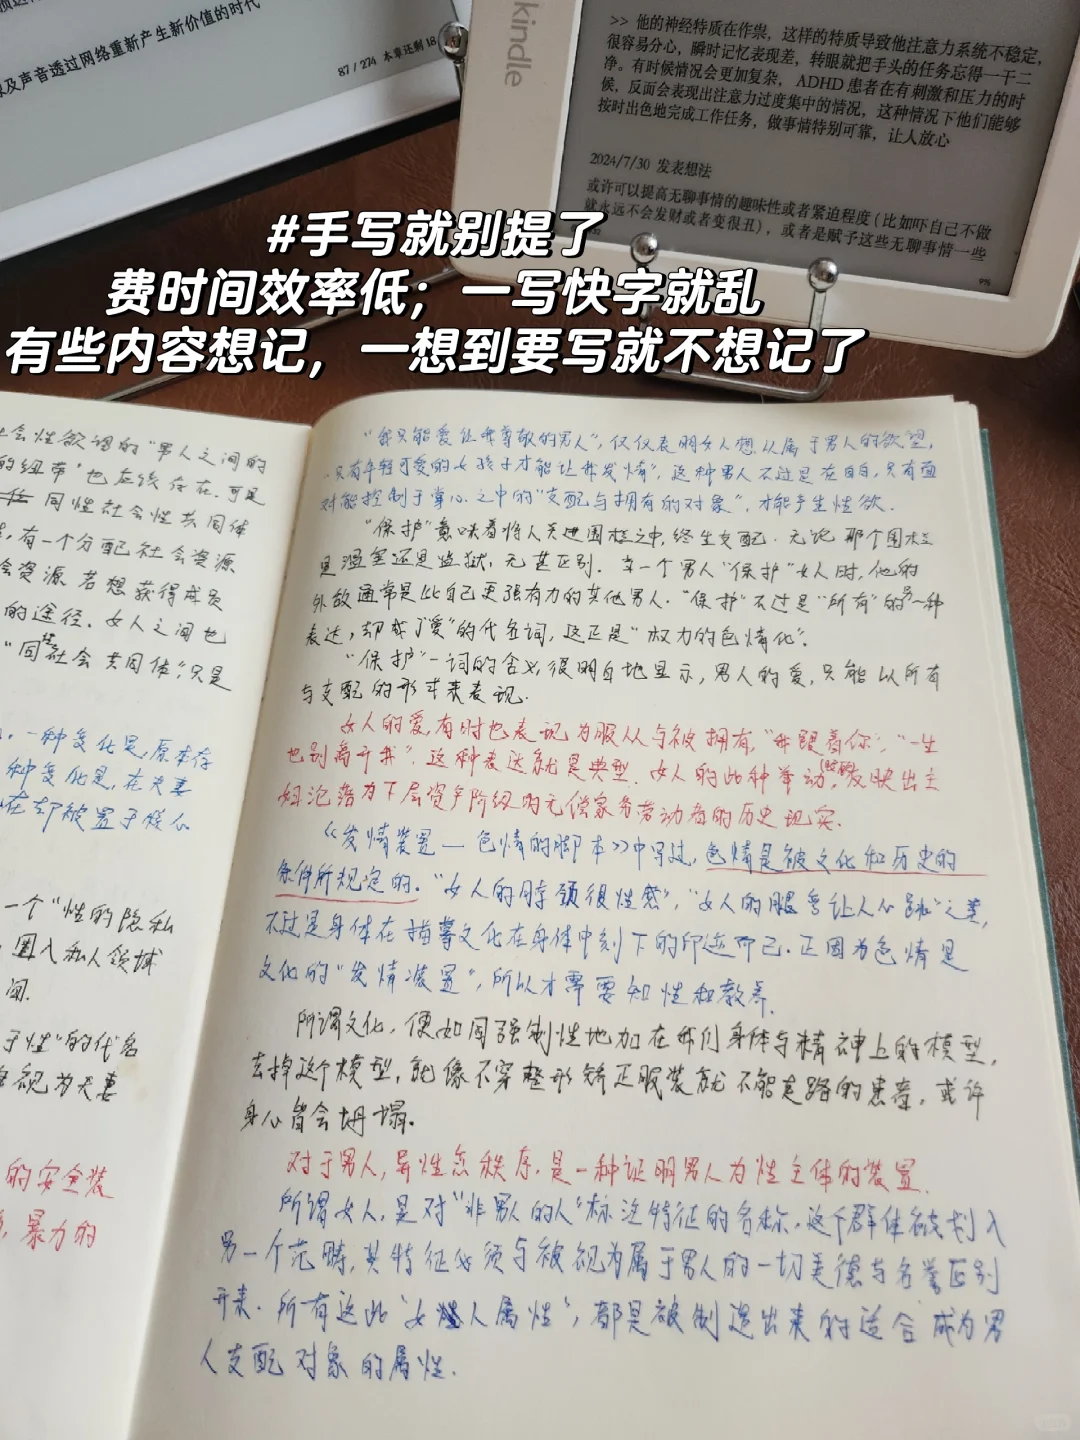 及声音透过网络重新产生新价值的时代
87 / 274 本章还剩 18
kindle
>> 他的神经特质在作祟，这样的特质导致他注意力系统不稳定，
很容易分心，瞬时记忆表现差，转眼就把手头的任务忘得一干二
净。有时候情况会更加复杂，ADHD 患者在有刺激和压力的时
候，反而会表现出注意力过度集中的情况，这种情况下他们能够
按时出色地完成工作任务，做事情特别可靠，让人放心
2024/7/30 发表想法
或许可以提高无聊事情的趣味性或者紧迫程度（比如吓自己不做
就永远不会发财或者变很丑），或者是赋予这些无聊事情一些
#手写就别提了
费时间效率低；一写快字就乱
有些内容想记，一想到要写就不想记了
会性欲望的"男人之间的
的纽带"也在续存在.可是
同性社会性共同体
,有一个分配社会资源
会资源若想获得成员
的途径.女人之间也
"同性社会共同体",只是
,一种变化是,原本存
种变化是,在夫妻
在却被置于核心
一个"性的隐私
,圈入私人领域
闻.
于性"的代名
视为夫妻
的安全装
,暴力的
"我只能爱让我尊敬的男人",仅仅表明女人想从属于男人的欲望,
"只有年轻可爱的女孩子才能让我发情",这种男人不过是在自白,只有面
对能控制于掌心之中的"支配与拥有的对象",才能产生性欲.
"保护"意味着将人关进围栏之中,终生支配.无论那个围栏
是温室还是监狱,无甚区别.当一个男人"保护"女人时,他的
外敌通常是比自己更强有力的其他男人."保护"不过是"所有"的另一种
表达,却成了"爱"的代名词,这正是"权力的色情化".
"保护"一词的含义,很明白地显示,男人的爱,只能以所有
与支配的形式来表现.
女人的爱,有时也表现为服从与被拥有,"我跟着你","一生
也别离开我",这种表达就是典型.女人的此种举动,反映出主
妇沦落为下层资产阶级的无偿家务劳动者的历史现实.
《发情装置—色情的脚本》中写过,色情是被文化和历史的
条件所规定的."女人的脖颈很性感","女人的腿会让人心跳"之类,
不过是身体在描摹文化在身体中刻下的印迹而已.正因为色情是
文化的"发情装置",所以才需要知性和教养.
所谓文化,便如同强制性地加在我们身体与精神上的模型,
去掉这个模型,就像不穿整形矫正服装就不能走路的患者,或许
身心皆会坍塌.
对于男人,异性恋秩序,是一种证明男人为性主体的装置.
所谓女人,是对"非男人的人"标注特征的名称,这个群体被划入
另一个范畴,其特征必须与被视为属于男人的一切美德与名誉区别
开来.所有这些"女人属性",都是被制造出来的适合成为男
人支配对象的属性.